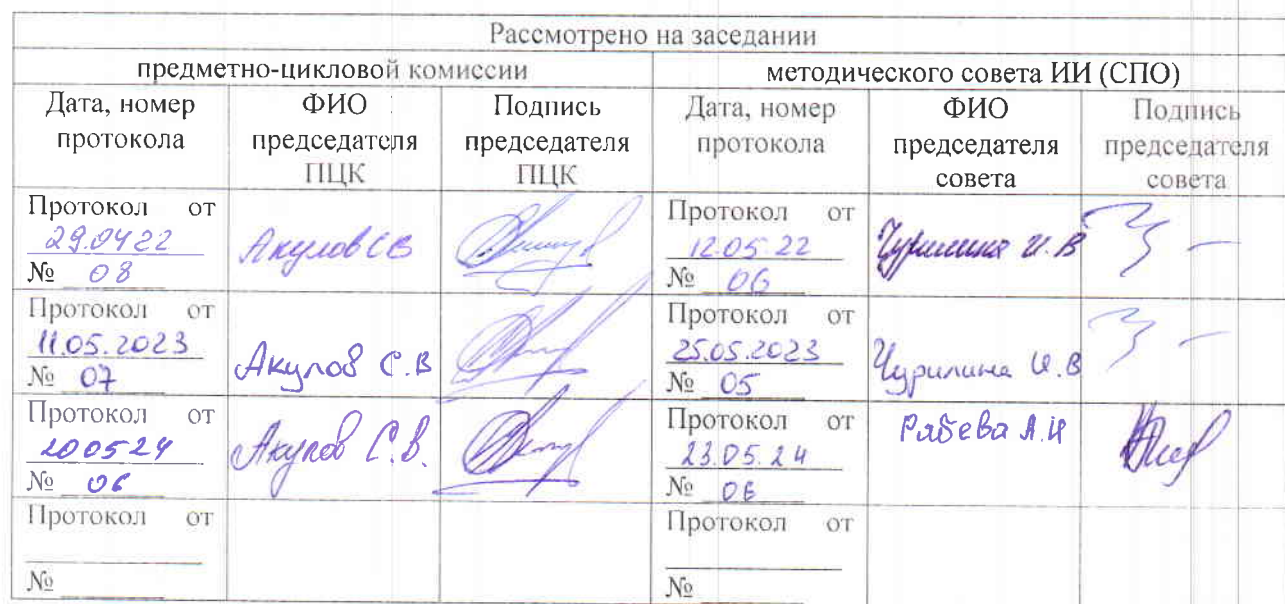 Рассмотрено на заседании
предметно-цикловой комиссии
методического совета ИИ (СПО)
Дата, номер протокола
ФИО председателя ПЦК
Подпись председателя ПЦК
Дата, номер протокола
ФИО председателя совета
Подпись председателя совета
Протокол от
29.04 22
№ 08
Акулов СВ
Протокол от
12.05 22
№ 06
Чурилина И.В
Протокол от
11.05.2023
№ 07
Акулов С.В
Протокол от
25.05.2023
№ 05
Чурилина И.В
Протокол от
200524
№ 06
Акулов С.В.
Протокол от
23.05.24
№ 06
Рябева А.И
Протокол от
№
Протокол от
№